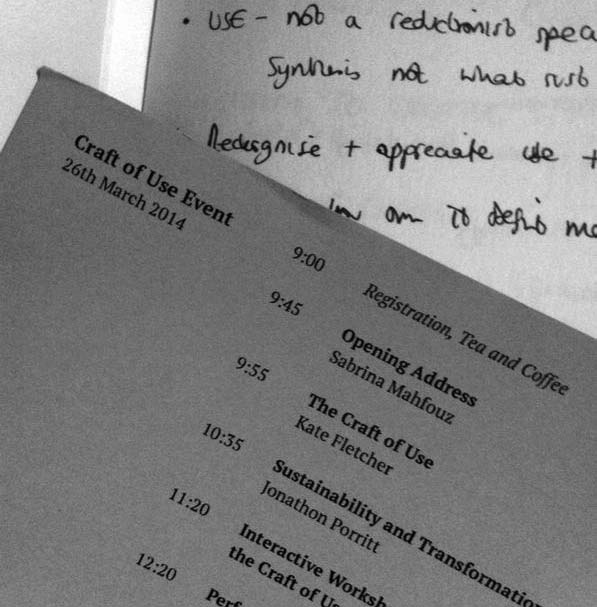 • USE - not a reductionist
Synthesis not what
Recognise + appreciate use +
to
Craft of Use Event
26th March 2014
9:00 Registration, Tea and Coffee
9:45 Opening Address
Sabrina Mahfouz
9:55 The Craft of Use
Kate Fletcher
10:35 Sustainability and Transformation
Jonathon Porritt
11:20 Interactive Worksh
the Craft of Us
12:20 Perf